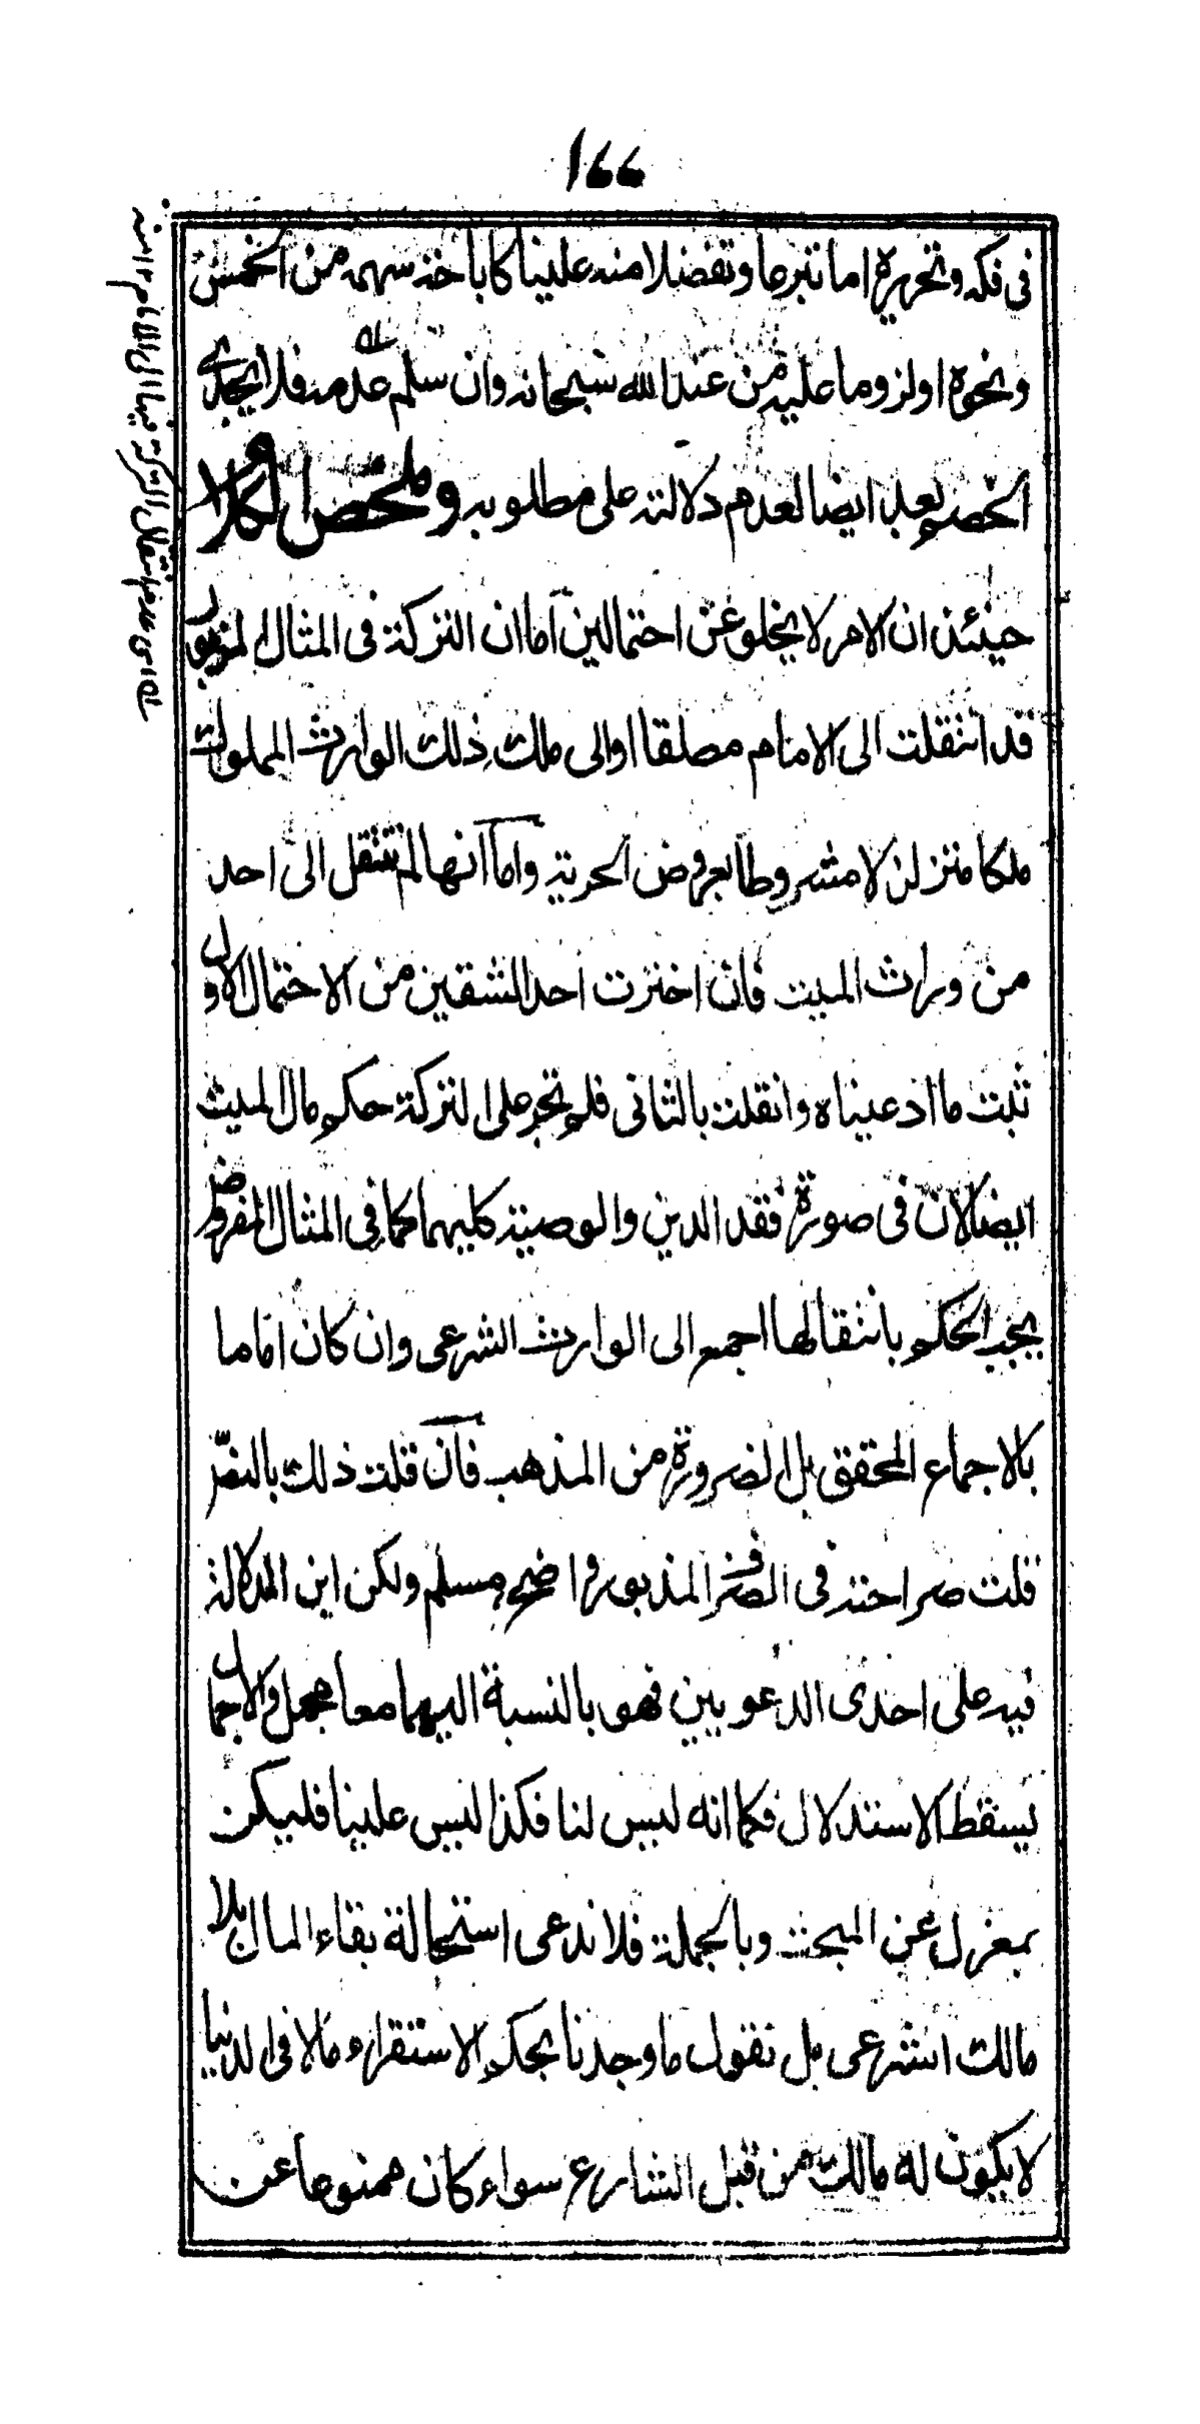 ١٦٦
فى فكه وتحريره اما تبرعا وتفضلا منه علينا كاباحته سهمه من الخمس
ونحوه او لزوما عليه من عند الله سبحانه وان سلم عدمه فلا يجدى
الخصم بعد ايضا لعدم دلالته على مطلوبه وملخص الكلام
حينئذ ان الامر لا يخلو عن احتمالين اما ان التركة فى المثال المزبور
قد انتقلت الى الامام مطلقا او الى ملك ذلك الوارث المملوك
ملكا متزلزلا مشروطا بعروض الحرية واما انها لم تنتقل الى احد
من وراث الميت فان اخترت احد الشقين من الاحتمال الاول
ثبت ما ادعيناه وان قلت بالثانى فلم تجر على التركة حكم مال الميت
ايضا لان فى صورة فقد الدين والوصية كليهما كما فى المثال المفروض
يجب الحكم بانتقالها اجمع الى الوارث الشرعى وان كان اماما
بالاجماع المحقق بل الضرورة من المذهب فان قلت ذلك بالنص
قلت صراحته فى الصرف المذبور واضح مسلم ولكن اين الدلالة
فيه على احدى الدعويين فهو بالنسبة اليهما معا مجمل والاجمال
يسقط الاستدلال فكما انه ليس لنا فكذا ليس علينا فليكن
بمعزل عن المبحث وبالجملة فلا ندعى استحالة بقاء المال بلا
مالك شرعى بل نقول ما وجدنا بحكم الاستقراء مالا فى الدنيا
لا يكون له مالك من قبل الشارع سواء كان ممنوعا عن